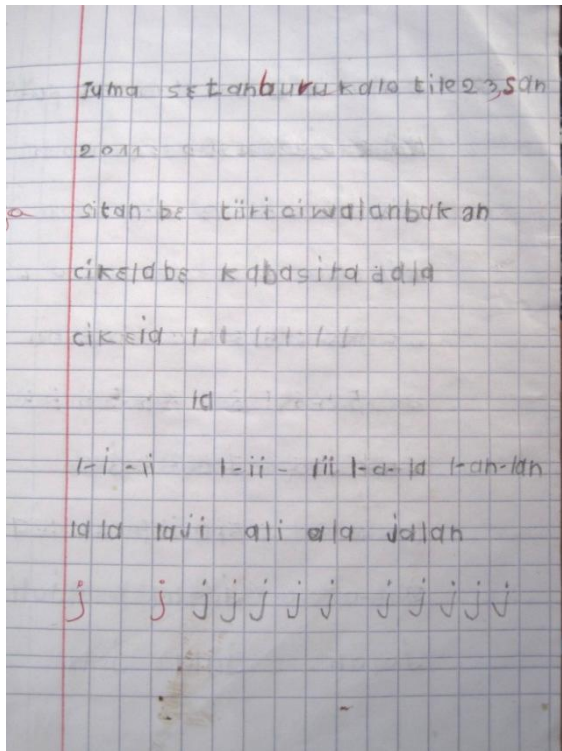 Juma setanburukalo tile 23, san
2011
sitan be tiiri ciwalanbakan
cikela be kabasira dala
cikela l l l l l l
la
l-i-li l-ii-lii l-a-la l-an-lan
lala laji ali ala jalan
j j j j j j j j j j j j